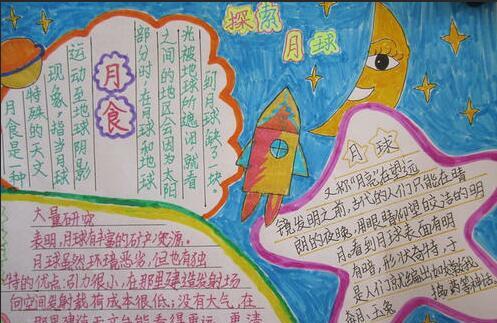 探索
月球
月食
月食是一种
特殊的天文
现象,指当月球
运动至地球阴影
部分时,在月球和地球
之间的地区会因为太阳
光被地球所遮阻,就看
到月球缺了一块。
月球
又称“月亮”在望远
镜发明之前,古代的人们只能在晴
朗的夜晚,用眼睛仰望皎洁的明
月。看到月球表面有明
有暗,形状奇特,于
是人们就编出如嫦娥
奔月、玉兔
捣药等神话。
大量研究
表明,月球有丰富的矿产资源。
月球虽然环境恶劣,但也有独
特的优点:引力很小,在那里建造发射场
向空间发射载荷成本很低;没有大气,在
那里建造天文台能看得更远、更清